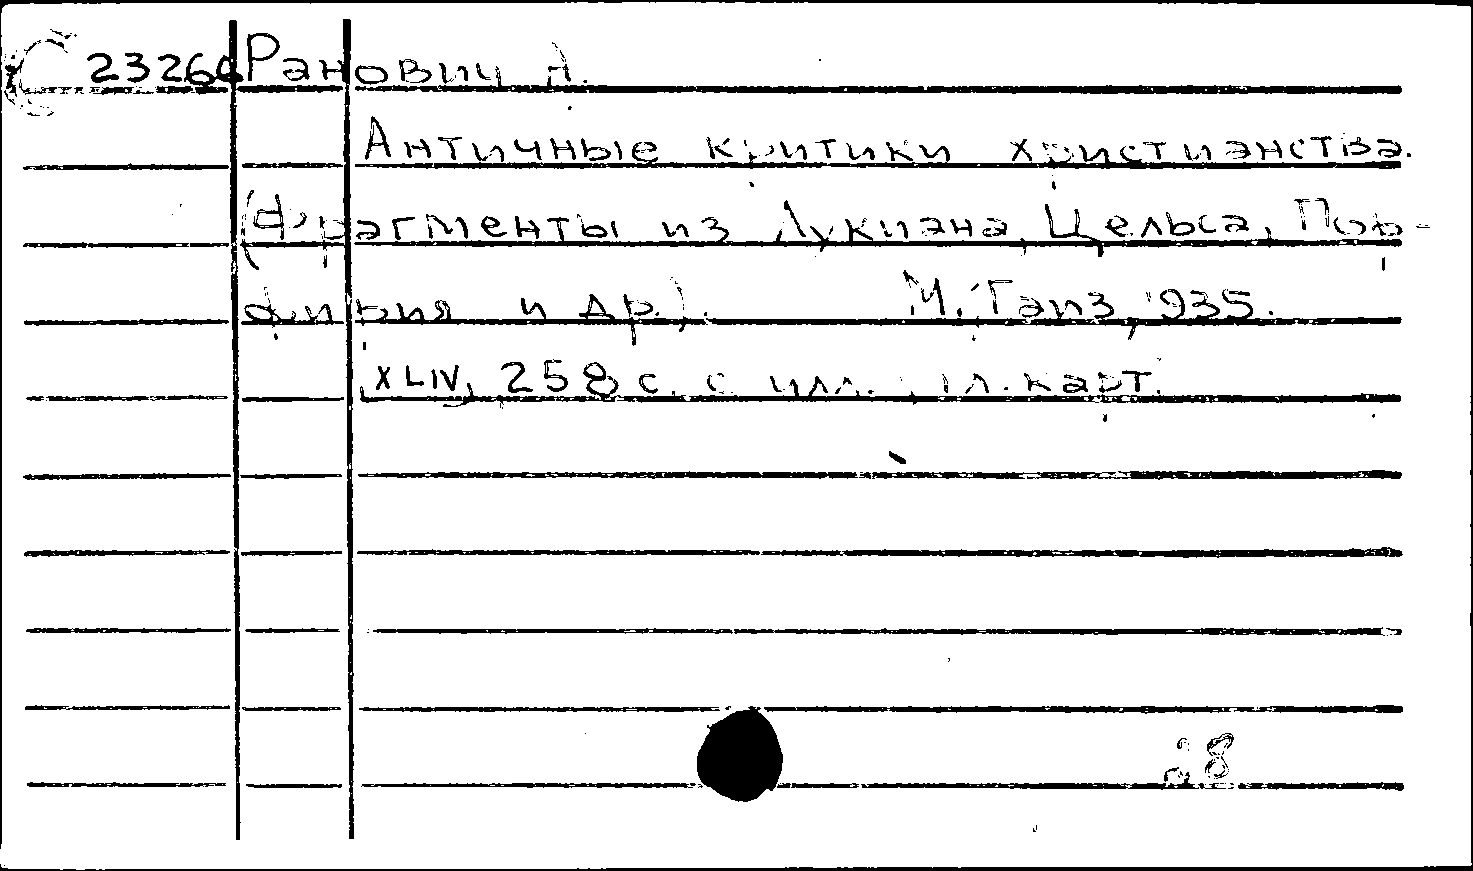 С 23266 Ранович А.
Античные критики христианства.
(Фрагменты из Лукиана, Цельса, Пор-
фирия и др.). М., Гаиз, 1935.
XLIV, 258 с. с илл., 1 л. карт.
28